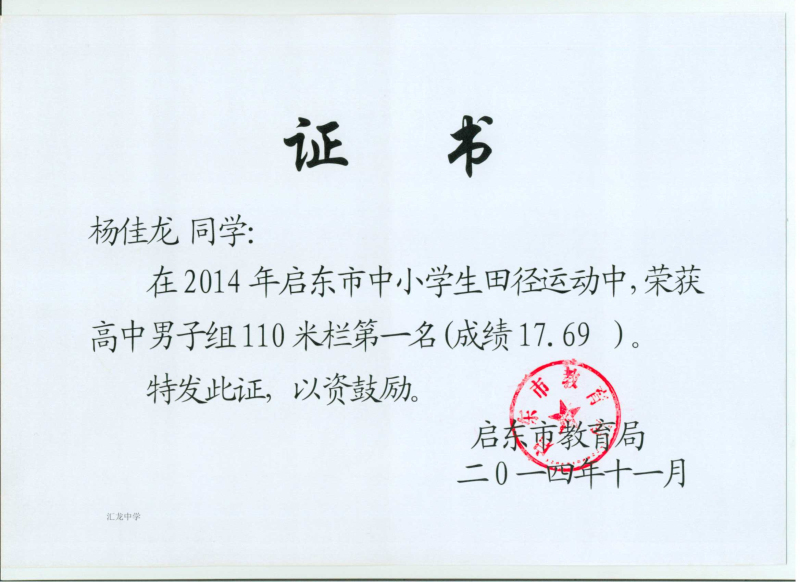 证 书
杨佳龙 同学:
在2014年启东市中小学生田径运动中,荣获
高中男子组110米栏第一名(成绩17.69 )。
特发此证, 以资鼓励。
启东市教育局
启东市教育局
二0一四年十一月
汇龙中学